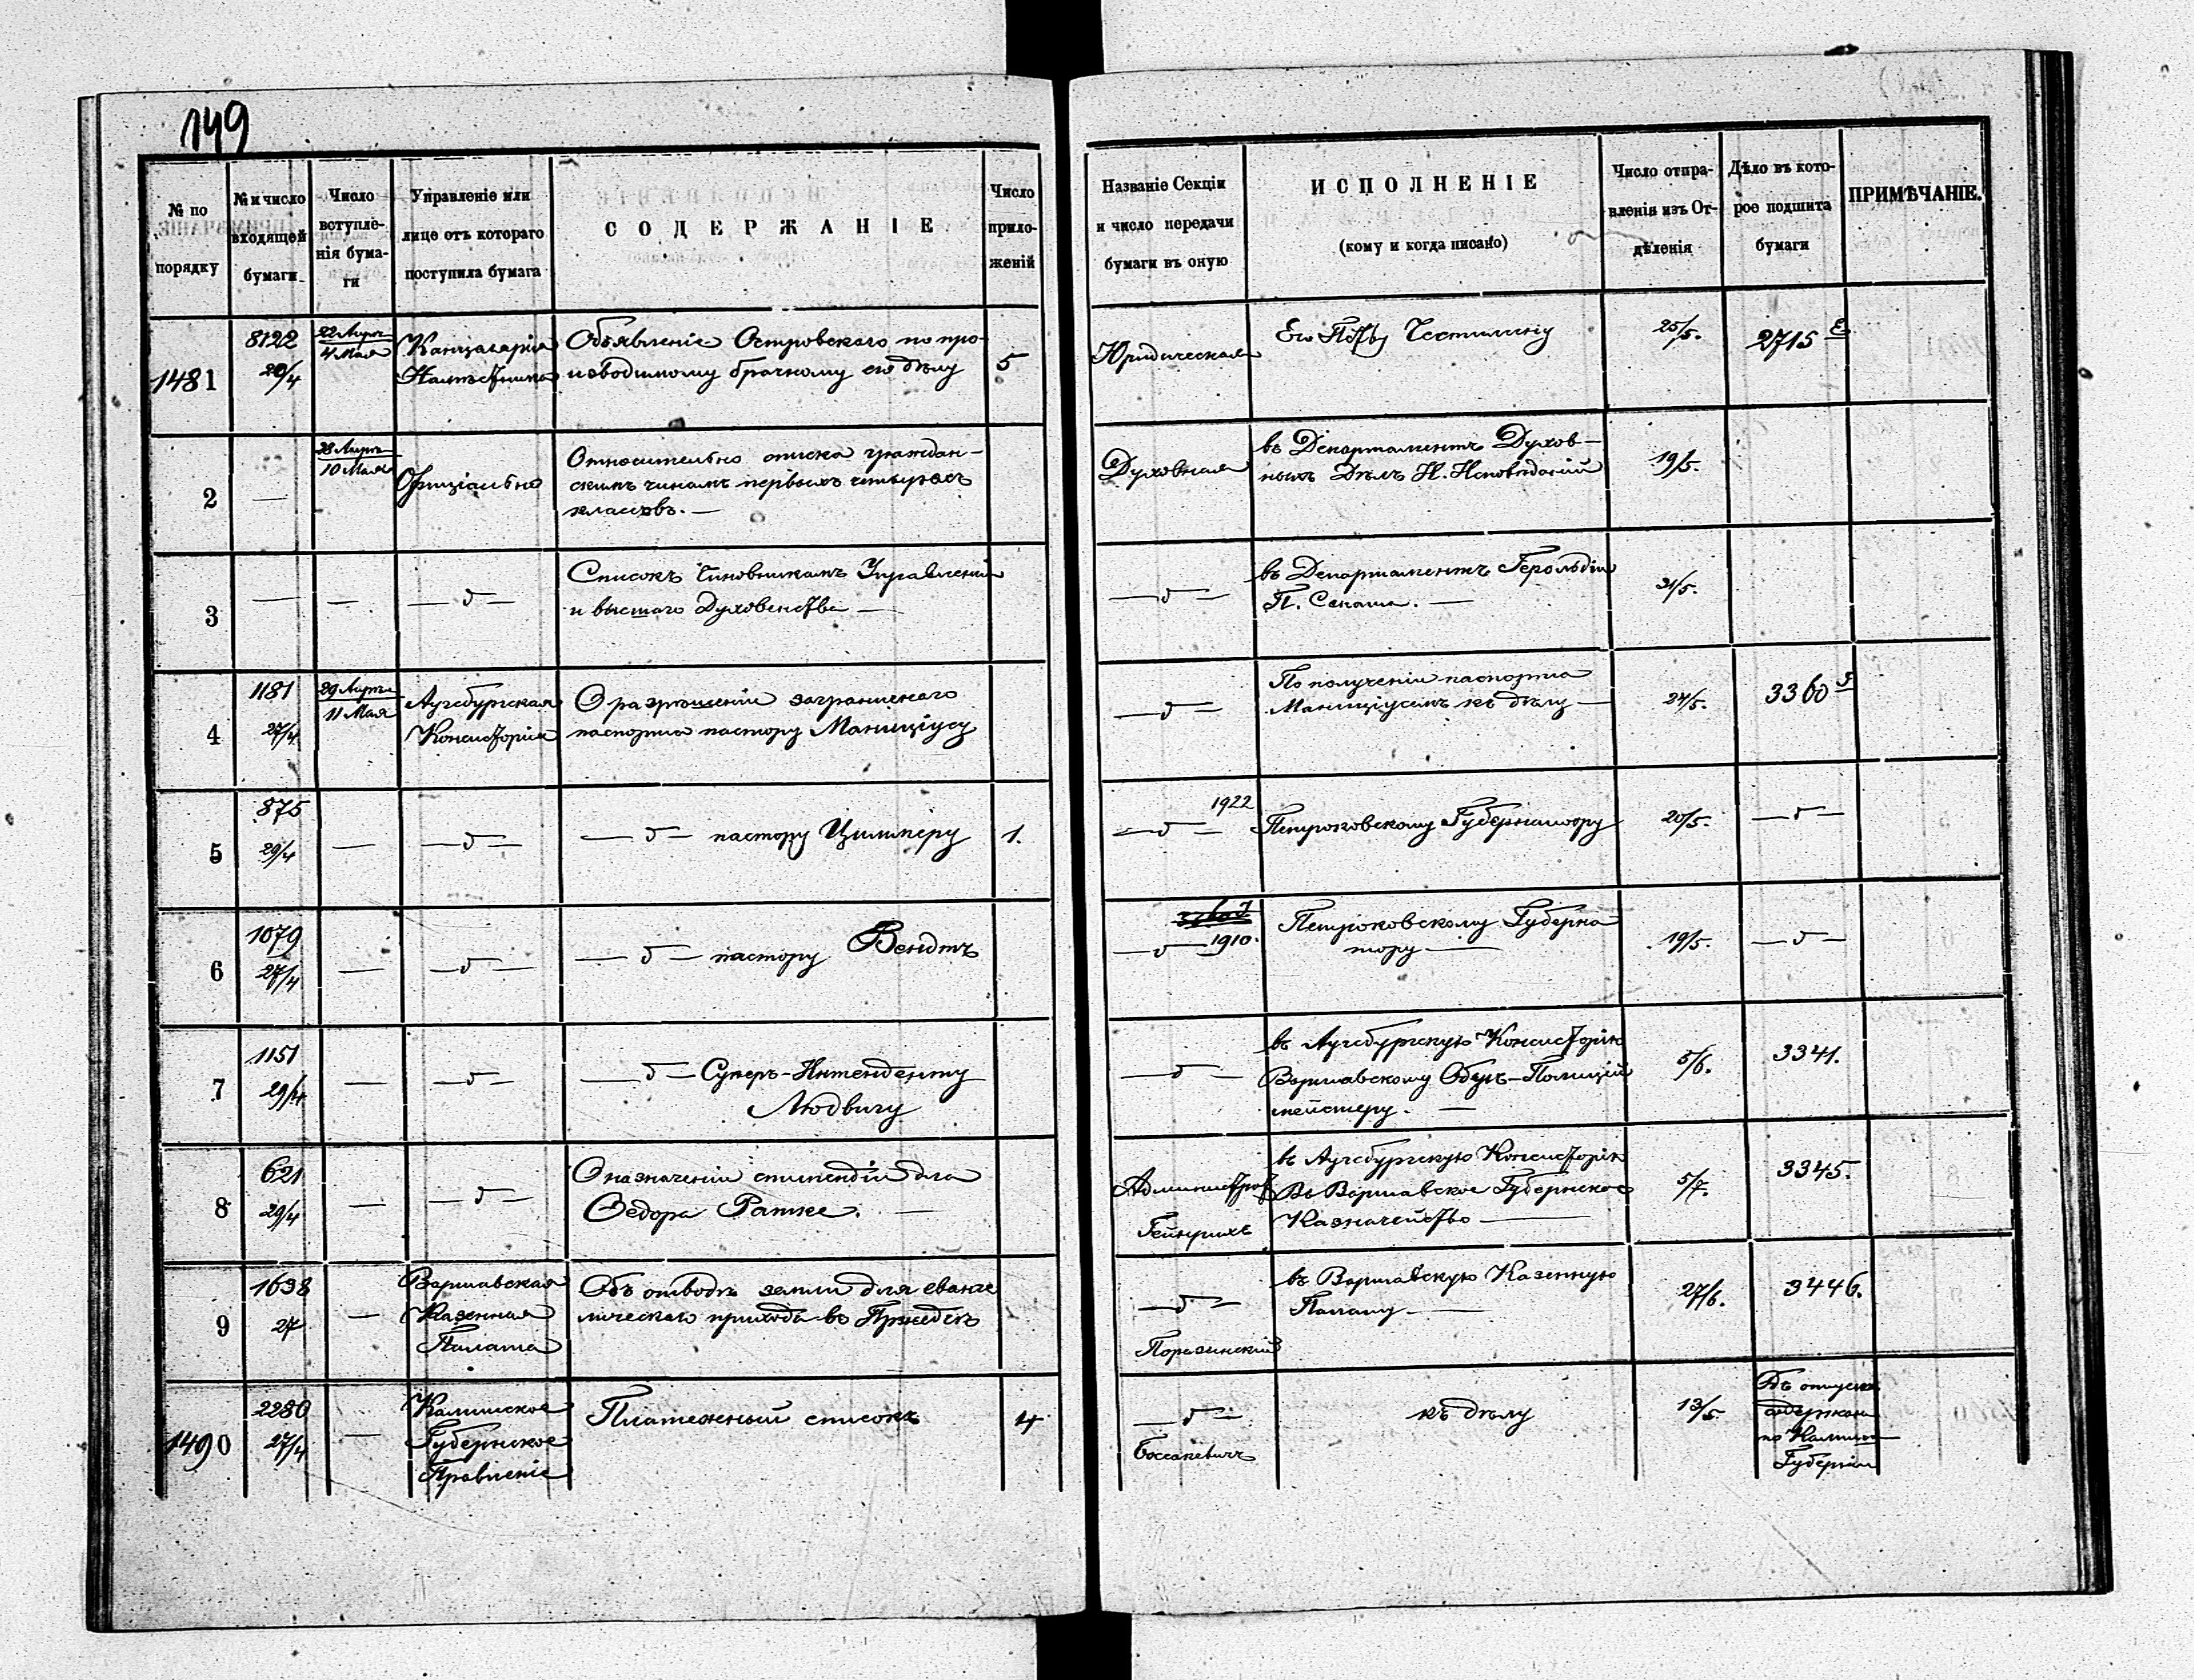 149
№ по порядку
№ и число входящей бумаги
Число вступле-нія бума-ги
Управленіе или лице отъ котораго поступила бумага
СОДЕРЖАНІЕ
Число прило-женій
Названіе Секціи и число передачи бумаги въ оную
ИСПОЛНЕНІЕ
(кому и когда писано)
Число отпра-вленія изъ От-дѣленія
Дѣло въ кото-рое подшита бумаги
ПРИМѢЧАНІЕ.
1481
8122
20/4
22 Апрѣ
4 Мая
Канцелярія
Намѣстника
Объявленіе Островскаго по про-
изводимому брачному его дѣлу
5
Юридическая
Его
25/5.
2715
2
—
28 Апрѣ
10 Мая
Офиціально
Относительно списка граждан-
скимъ чинамъ первыхъ четырехъ
классовъ. —
Духовная
въ Департаментъ Духов-
ныхъ Дѣлъ И. Исповѣданій
19/5.
3
—
—
— д —
Списокъ Чиновникамъ Управленій
и высшаго Духовенства —
— д —
въ Департаментъ Герольдіи
П. Сената. —
21/5.
4
1181
27/4
29 Апрѣ
11 Мая
Аугсбургская
Консисторія
О разрѣшеніи заграничнаго
паспорта пастору Маниціусу
— д —
По полученіи паспорта
Маниціусомъ къ дѣлу —
24/5.
3360
5
875
29/4
—
— д —
— д — пастору Циммеру
1.
1922
— д —
Петроковскому Губернатору
20/5.
— д —
6
1079
27/4
—
— д —
— д — пастору Вендтъ
— д — 1910.
Петроковскому Губерна
тору —
19/5.
— д —
7
1151
29/4
—
— д —
— д — Суперъ-Интенденту
Людвигу
— д —
въ Аугсбургскую Консисторію
Варшавскому Оберъ-Полицій
мейстеру. —
5/6.
3341.
8
621
29/4
—
— д —
О назначеніи стипендіи для
Ѳедора Ратке. —
Администрат
Гейнрихъ
въ Аугсбургскую Консисторію
Въ Варшавское Губернское
Казначейство —
5/7.
3345.
9
1638
27
—
Варшавская
Казенная
Палата
Объ отводѣ земли для еванге
лическаго прихода въ
— д —
въ Варшавскую Казенную
Палату. —
27/6.
3446.
1490
2280
27/4
—
Калишское
Губернское
Правленіе
Платежный списокъ
4
— д —
къ дѣлу
13/5
по Калишс
Губерніи